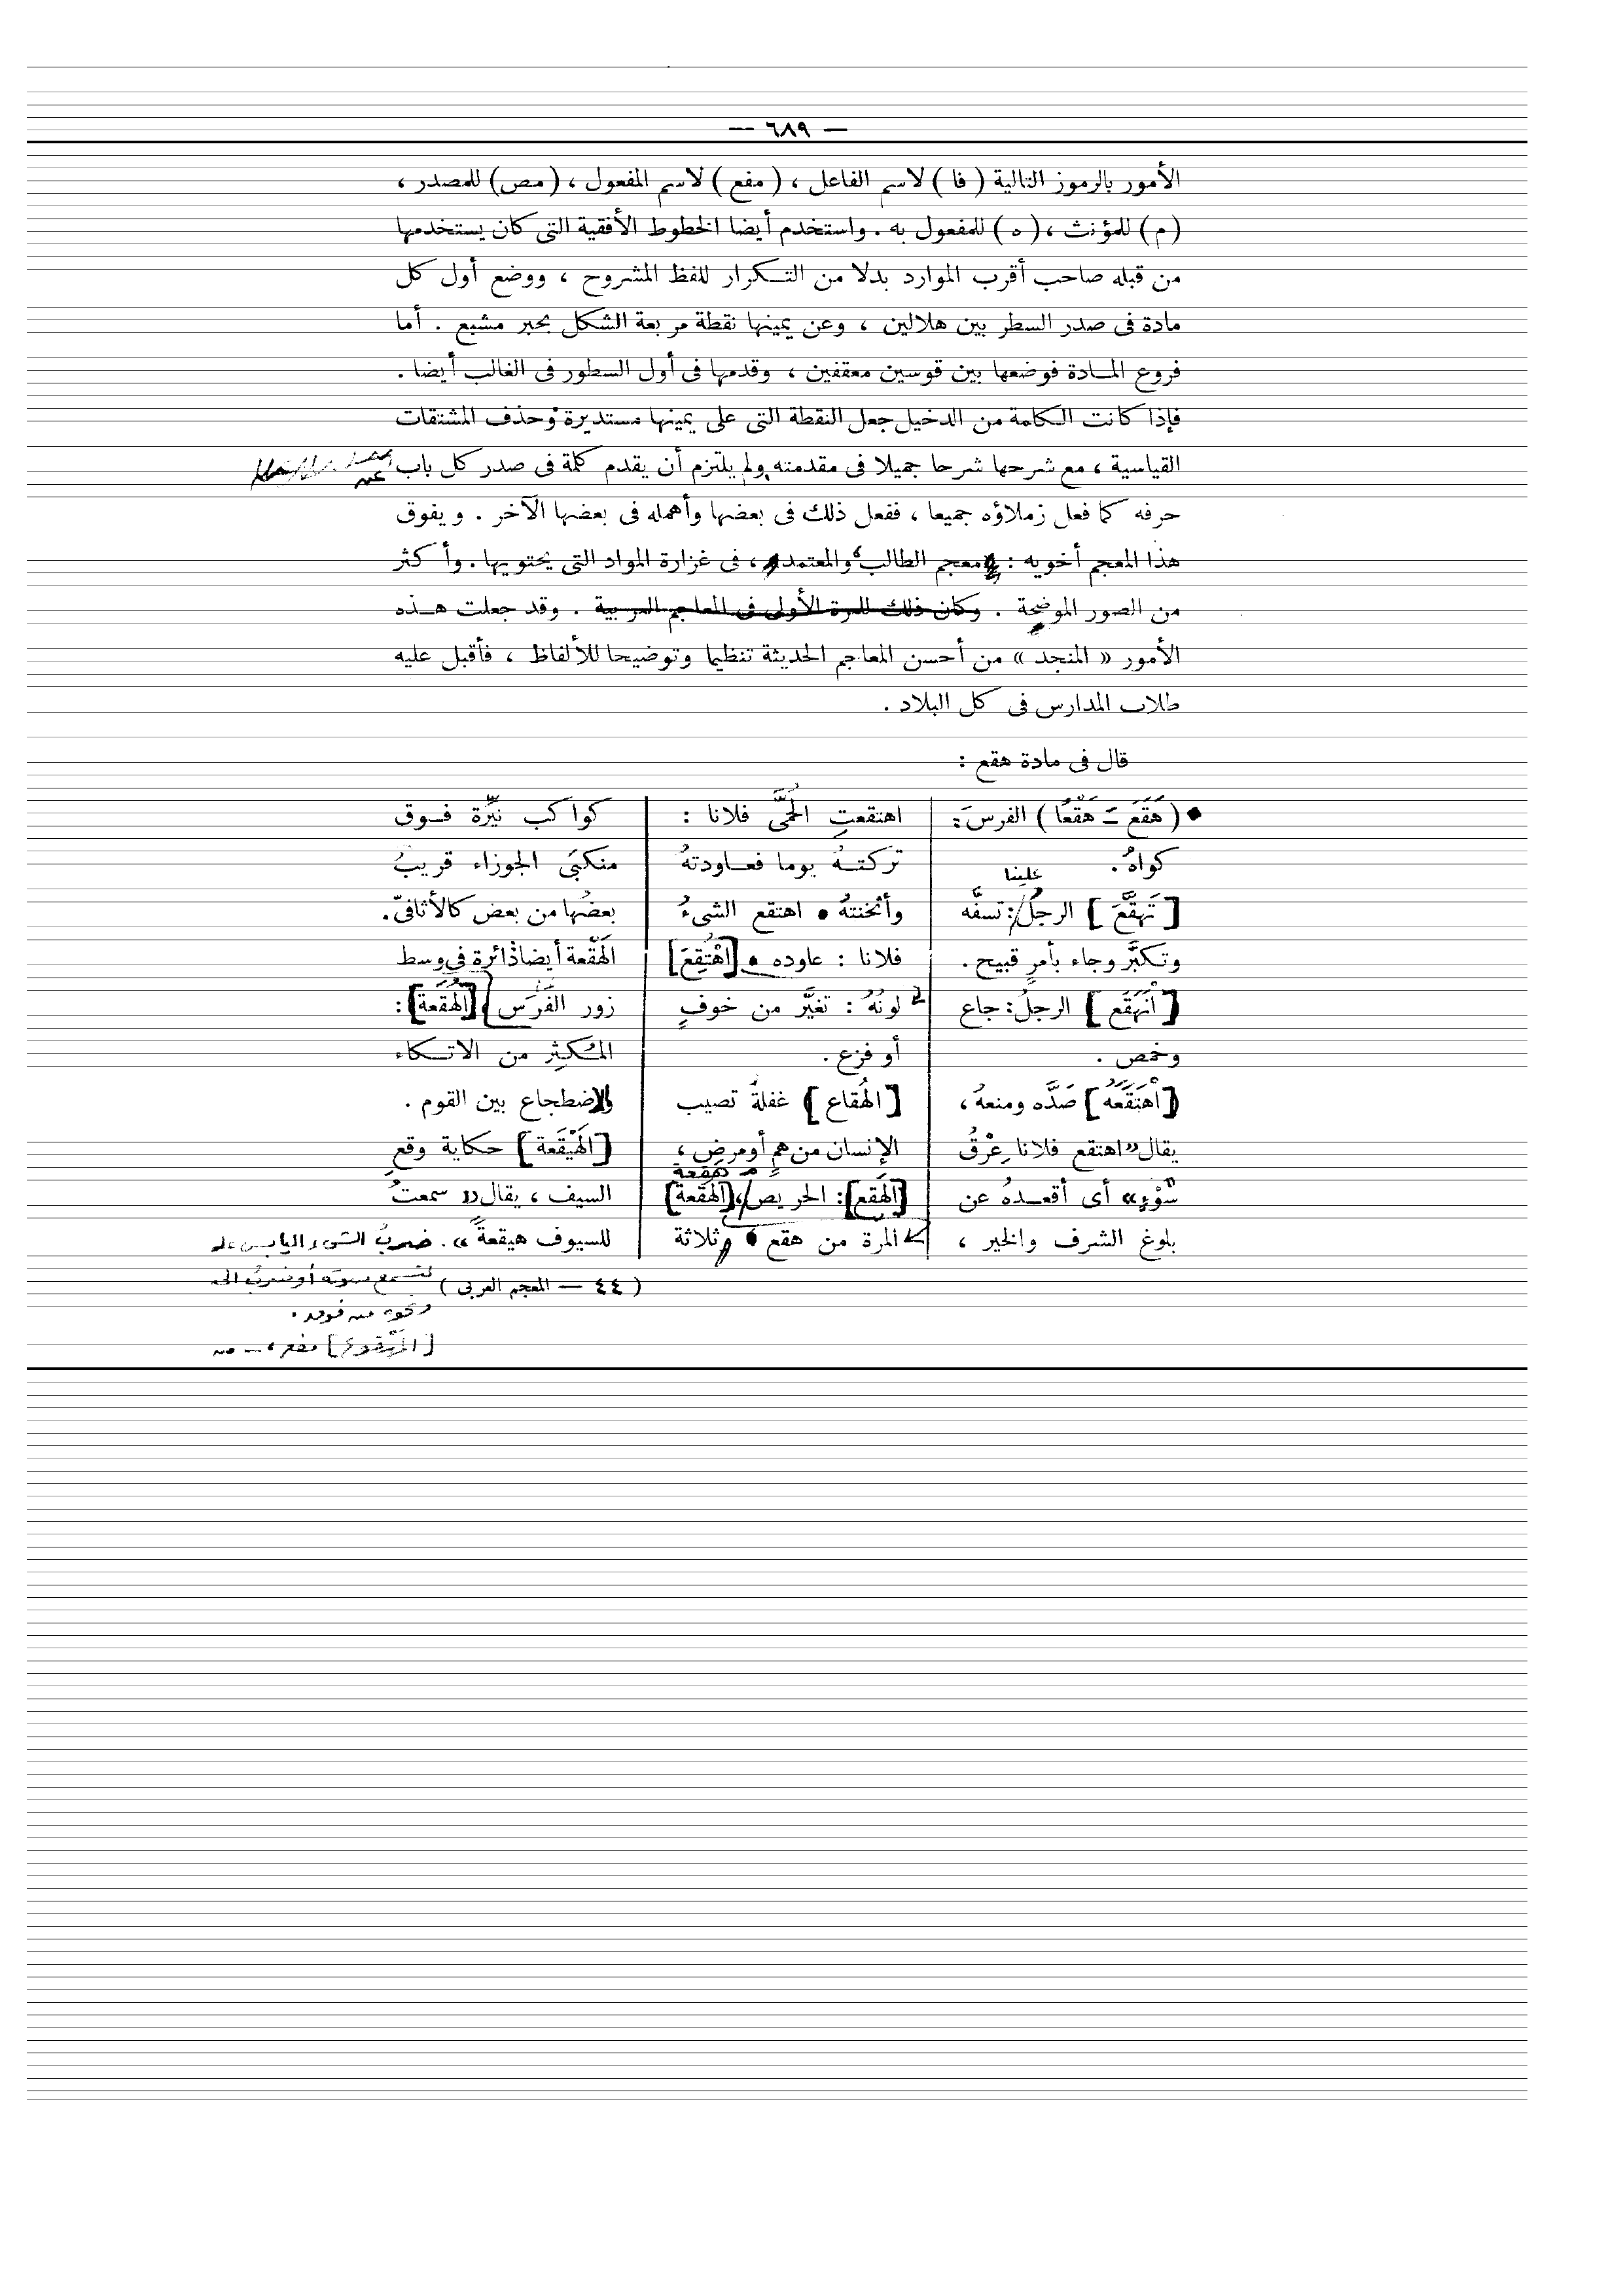 — ٦٨٩ —
الأمور بالرموز التالية ( فا ) لاسم الفاعل ، ( مفع ) لاسم المفعول ، ( مص ) للمصدر ،
( م ) للمؤنث ، ( ه ) للمفعول به . واستخدم أيضا الخطوط الأفقية التى كان يستخدمها
من قبله صاحب أقرب الموارد بدلا من التكرار للفظ المشروح ، ووضع أول كل
مادة فى صدر السطر بين هلالين ، وعن يمينها نقطة مربعة الشكل بحبر مشبع . أما
فروع المادة فوضعها بين قوسين معقفين ، وقدمها فى أول السطور فى الغالب أيضا .
فإذا كانت الكلمة من الدخيل جعل النقطة التى على يمينها مستديرة وحذف المشتقات
القياسية ، مع شرحها شرحا جميلا فى مقدمته ولم يلتزم أن يقدم كلمة فى صدر كل باب عن
حرفه كما فعل زملاؤه جميعا ، ففعل ذلك فى بعضها وأهمله فى بعضها الآخر . ويفوق
هذا المعجم أخويه : معجم الطالب والمعتمد ، فى غزارة المواد التى يحتويها . وأكثر
من الصور الموضحة . وكان ذلك للمرة الأولى فى المعاجم العربية . وقد جعلت هذه
الأمور « المنجد » من أحسن المعاجم الحديثة تنظيما وتوضيحا للألفاظ ، فأقبل عليه
طلاب المدارس فى كل البلاد .
قال فى مادة هقع :
● ( هَقَعَ – هَقْعًا ) الفرسَ :
كواهُ .
علينا
[ تَهَقَّعَ ] الرجلُ : تسفَّه
وتكبَّر وجاء بأمرٍ قبيح .
[ أنهَقَع ] الرجلُ : جاع
وخمص .
[ اهتَقَعَهُ ] صَدَّه ومنعهُ ،
يقال « اهتقع فلانا عِرْقُ
سُوْءٍ » أى أقعدهُ عن
بلوغ الشرف والخير ،
اهتقعتِ الحُمَّى فلانا :
تركتهُ يوما فعاودتهُ
وأثخنتهُ ● اهتقع الشىءُ
فلانا : عاوده ● [اهْتُقِعَ]
لونُهُ : تغيَّر من خوفٍ
أو فزع .
[ الهُقاع ] غفلةٌ تصيب
الإنسان من همٍ أو مرضٍ ،
هقعة
[الهَقِع] : الحريص ، [الهَقعة]
المرة من هقع ● وثلاثة
كواكب نيِّرة فوق
منكبَى الجوزاء قريبُ
بعضُها من بعض كالأثافىّ .
الهَقْعة أيضا دائرة فى وسط
زور الفَرَس [الهُقَعة] :
المُكثِر من الاتكاء
والاضطجاع بين القوم .
[ الهَيْقَعة ] حكاية وقعِ
السيف ، يقال « سمعتُ
للسيوف هيقعةً » . ضربُ الشىء اليابس على
لتسمع صوته أو ضربُ الحد
( ٤٤ — المعجم العربى )
من فوقه .